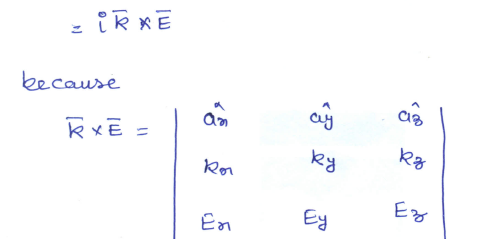 = i k̄ × Ē
because
k̄ × Ē = | âx ây âz |
| kx ky kz |
| Ex Ey Ez |